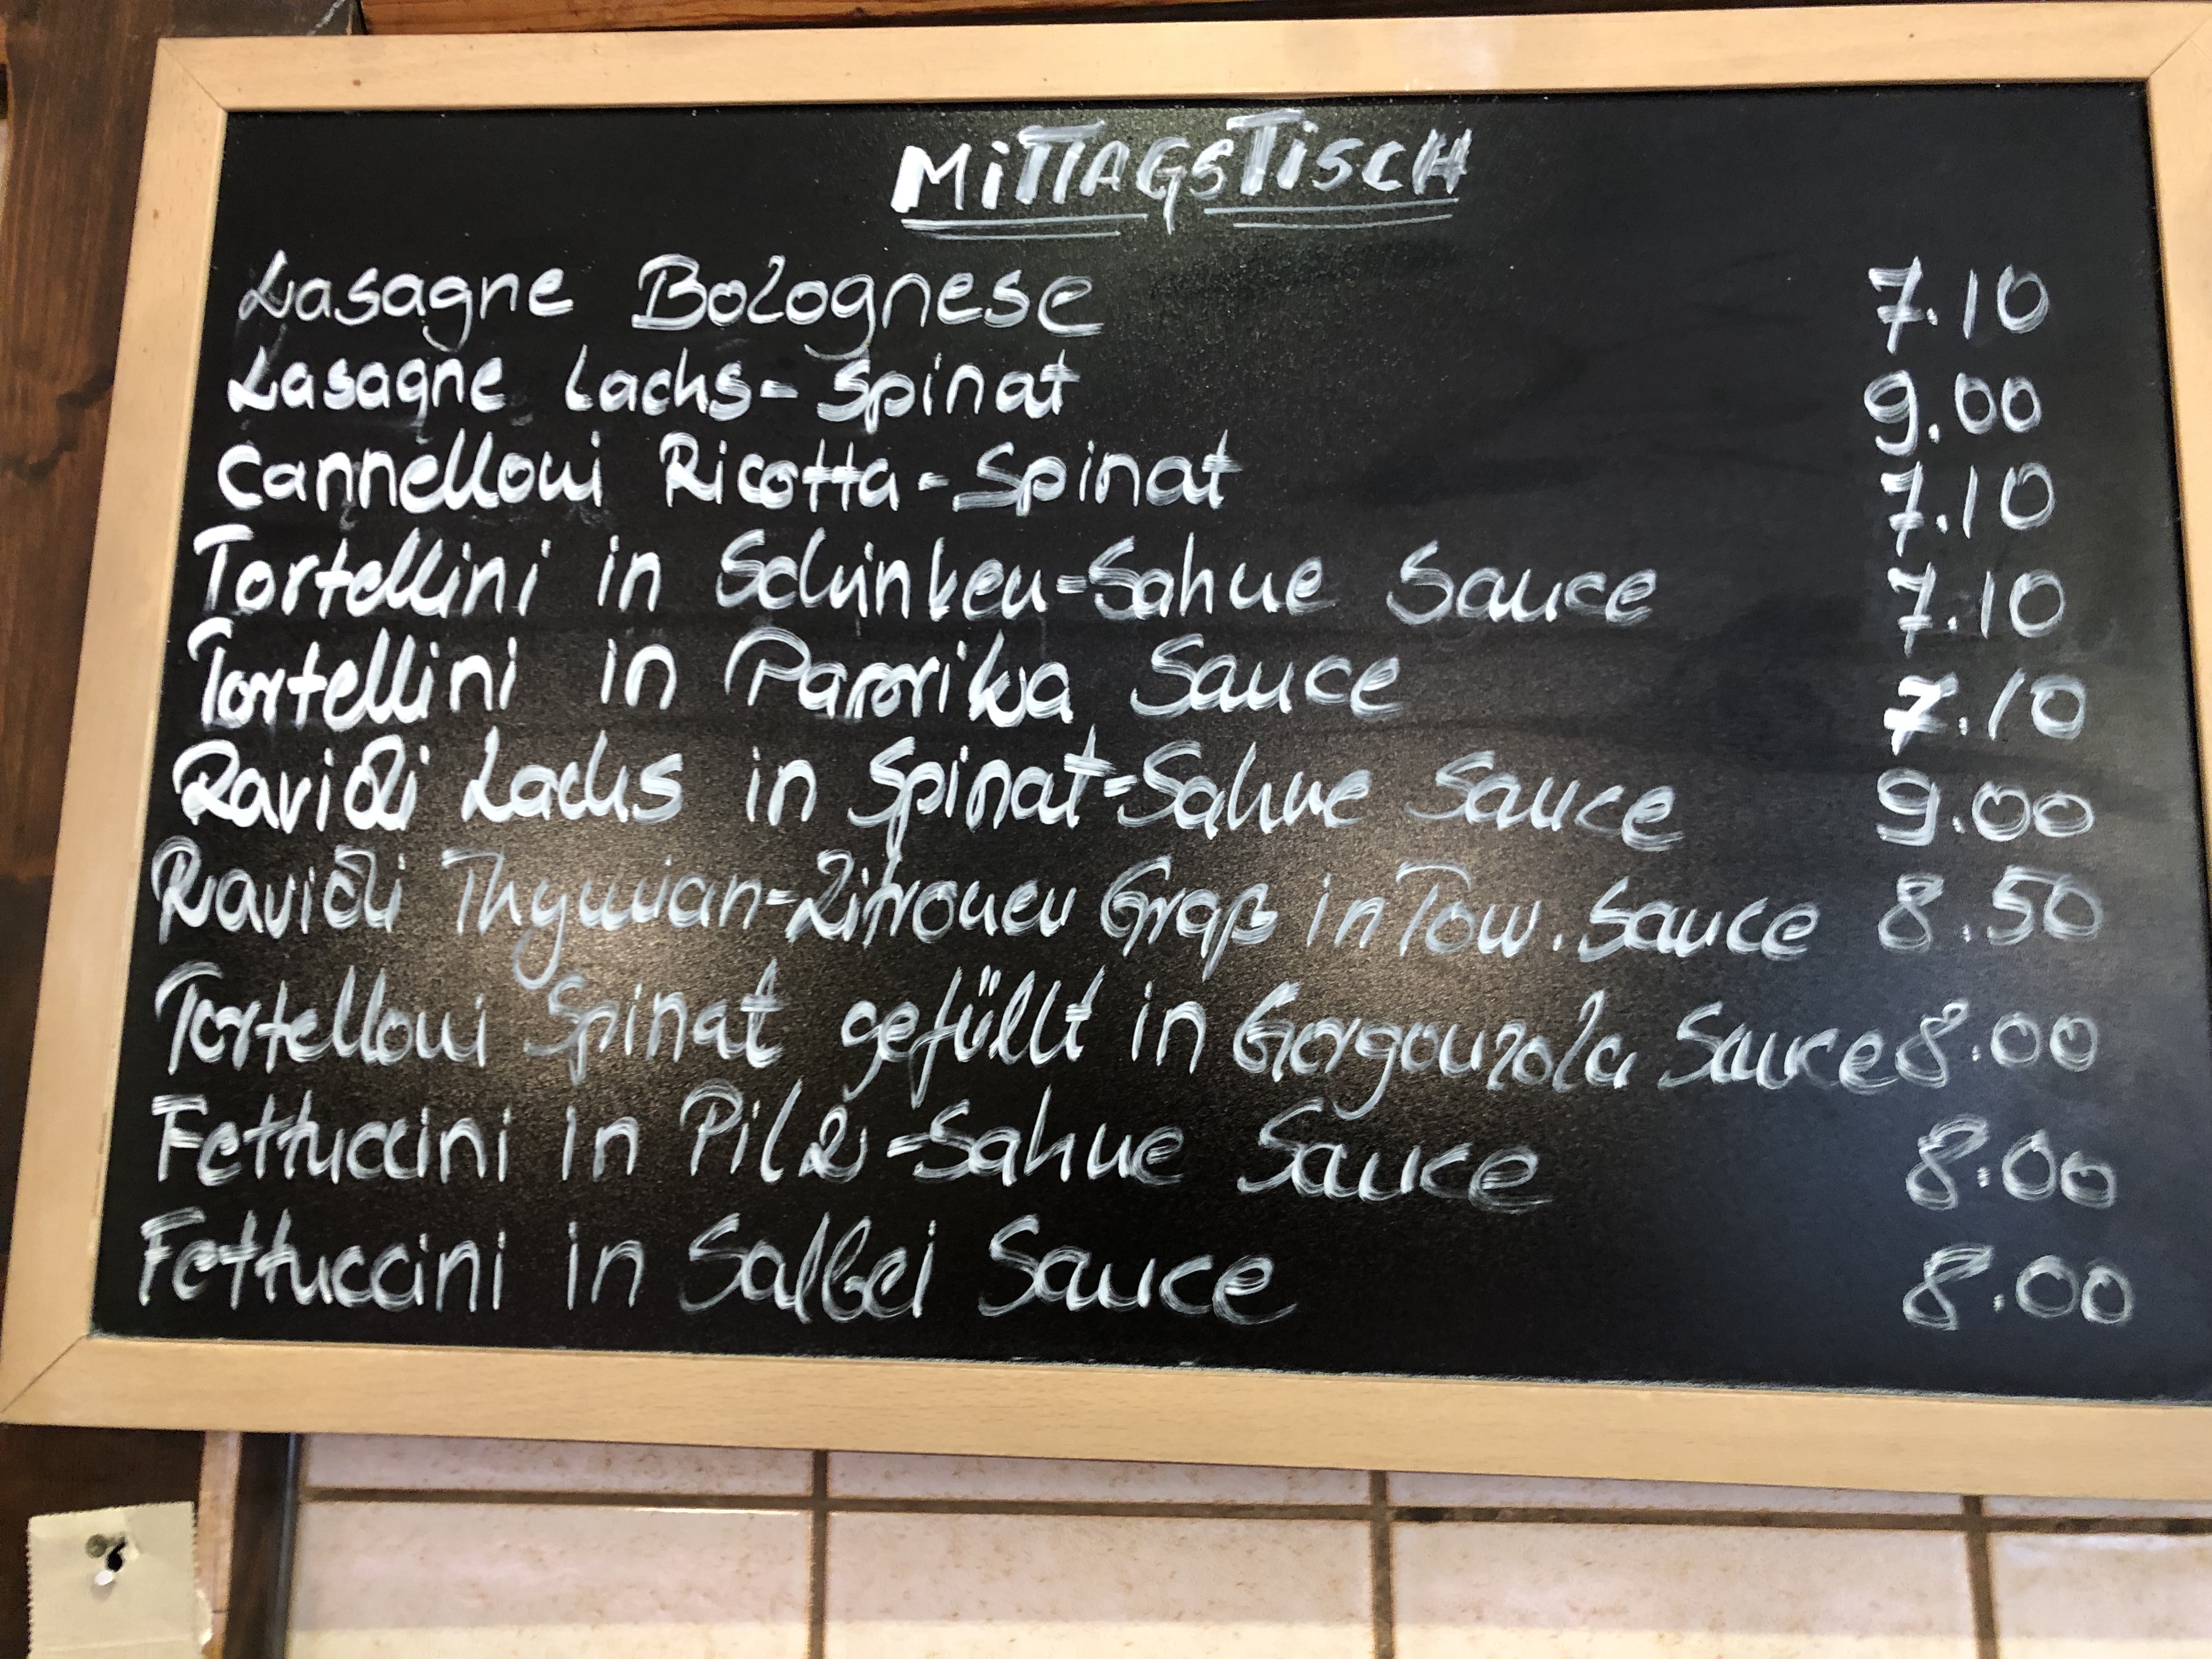 MITTAGSTISCH
Lasagne Bolognese 7.10
Lasagne Lachs-Spinat 9.00
Cannelloni Ricotta-Spinat 7.10
Tortellini in Schinken-Sahne Sauce 7.10
Tortellini in Paprika Sauce 7.10
Ravioli Lachs in Spinat-Sahne Sauce 9.00
Ravioli Thymian-Zitronen Groß in Tom. Sauce 8.50
Tortelloni Spinat gefüllt in Gorgonzola Sauce 8.00
Fettuccini in Pilz-Sahne Sauce 8.00
Fettuccini in Salbei Sauce 8.00